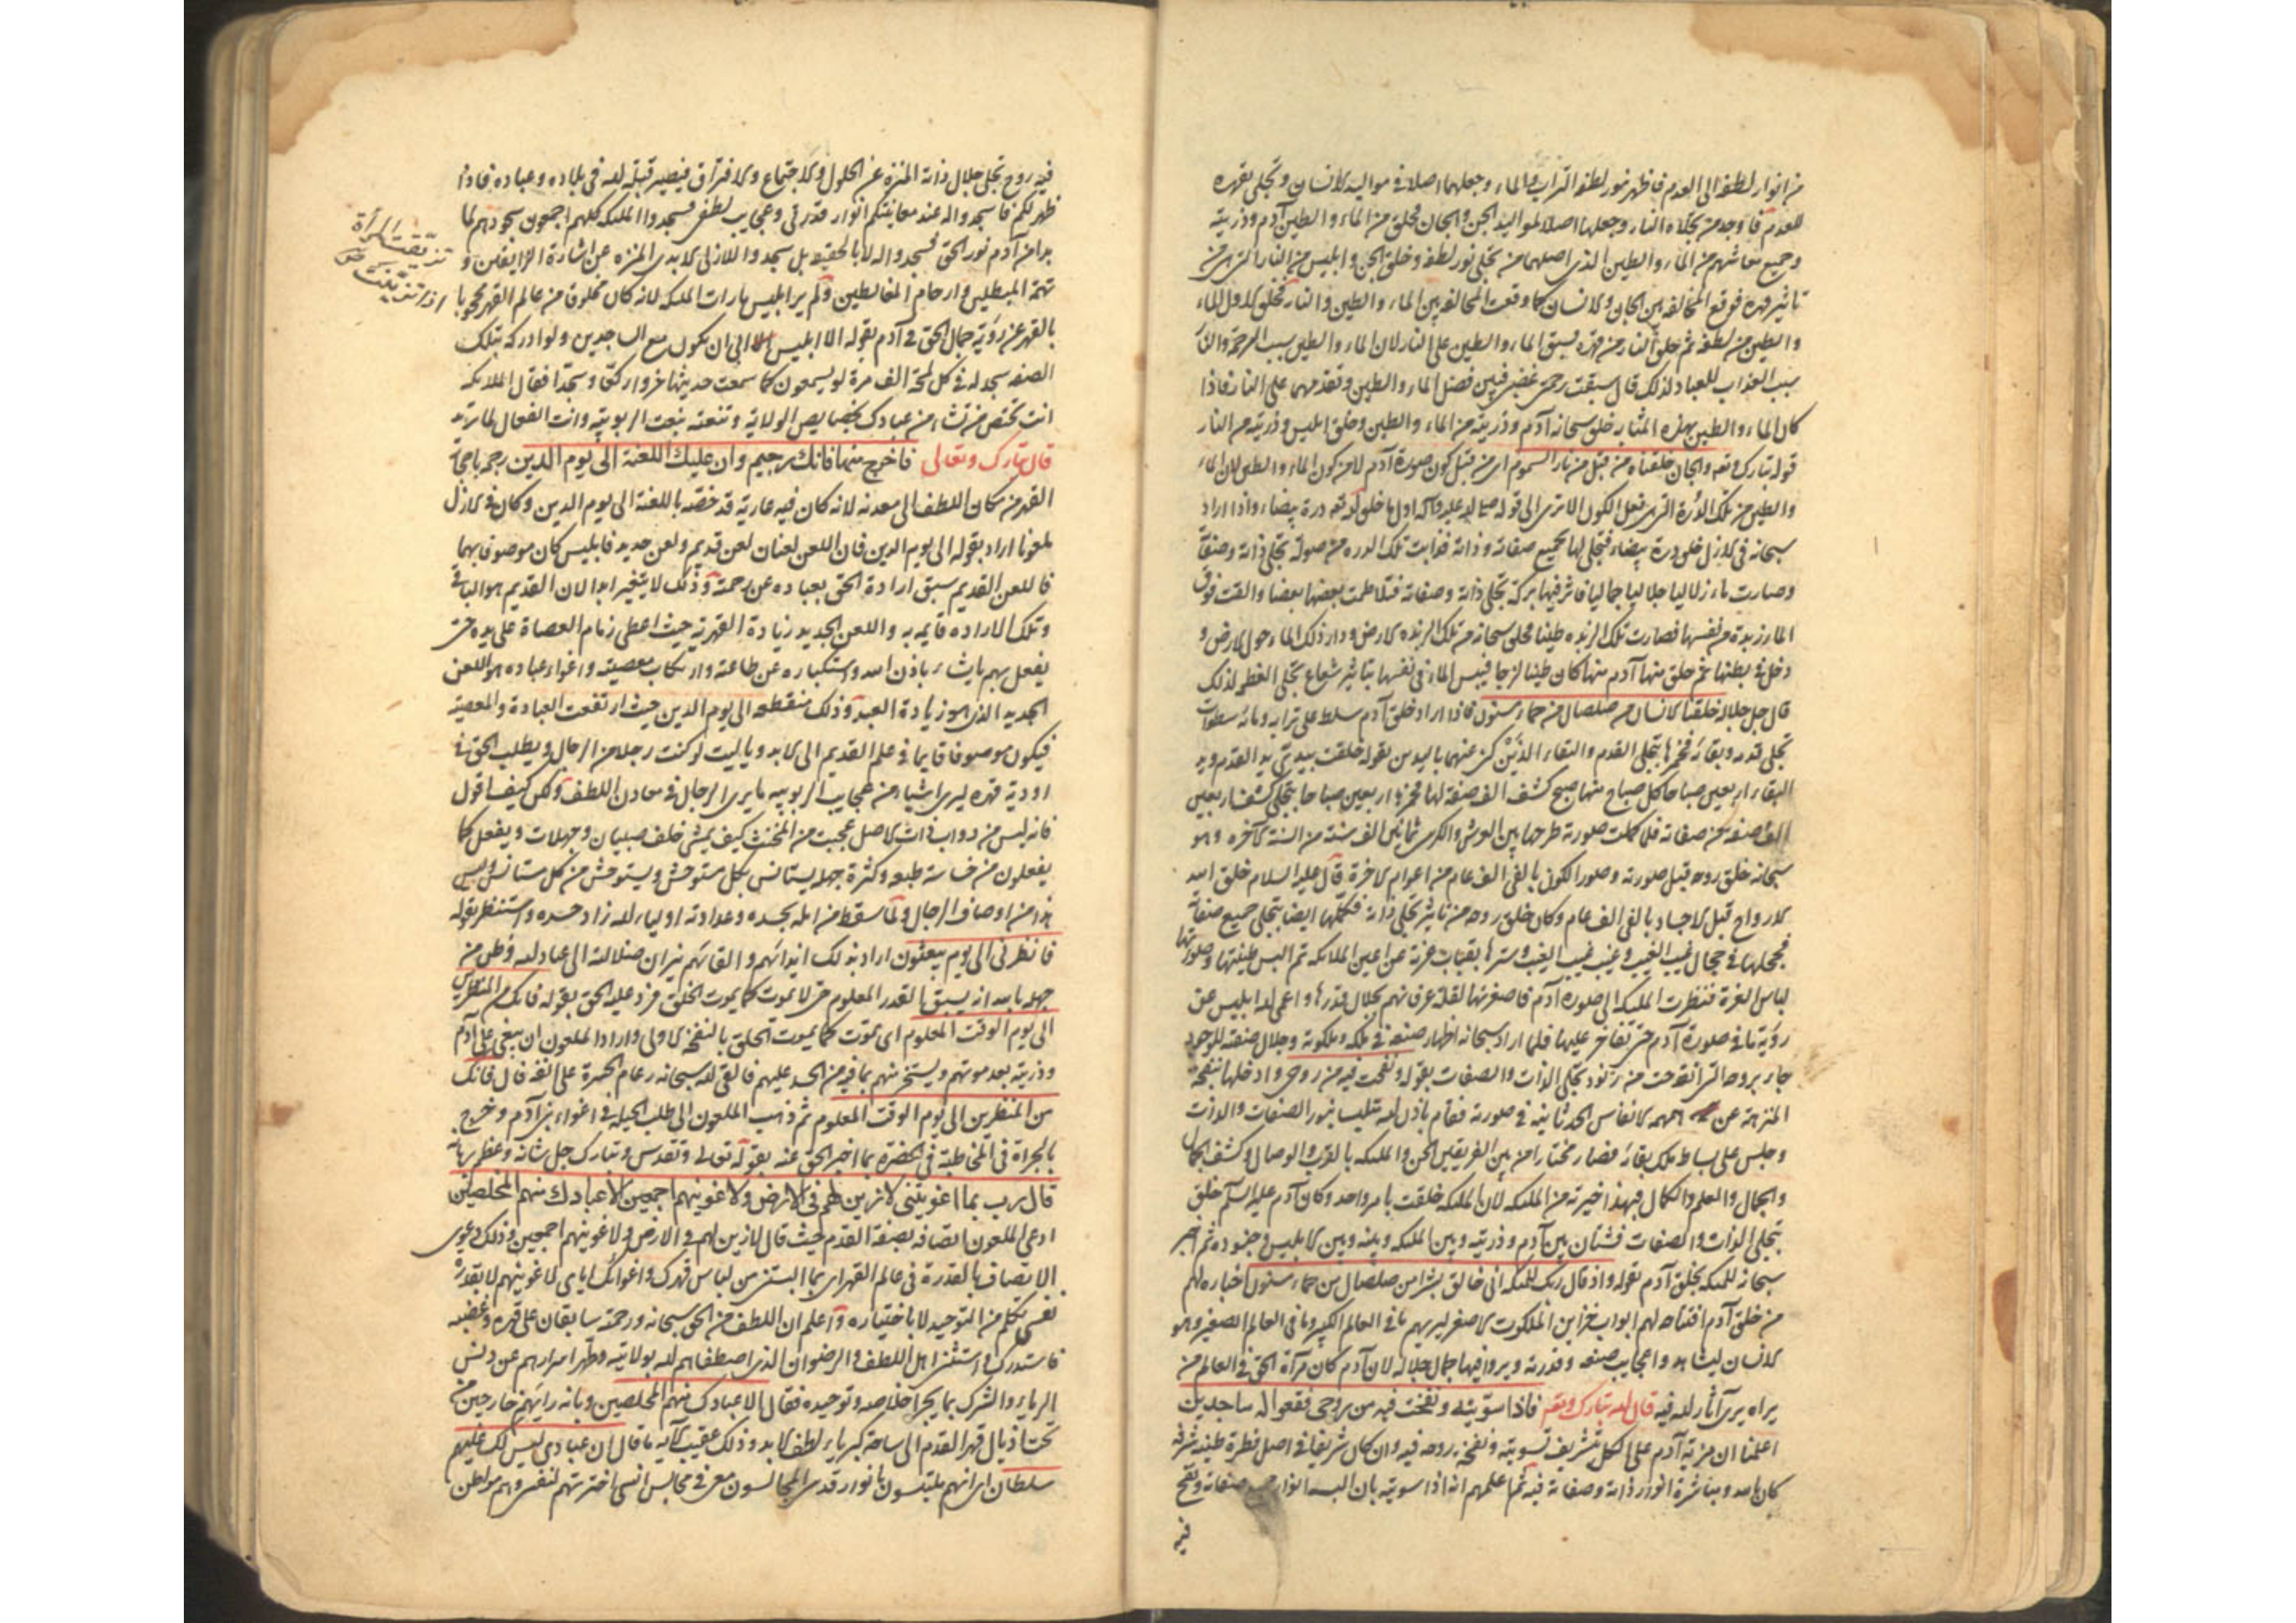 من انوار لطفه الى العدم فاظهر نور لطفه التراب والماء وجعلهما اصلا فى مواليد الانسان وتجلى بقهره
للعدم فاوجد من تجلاه النار وجعلها اصلا لمواليد الجن والجان فخلق من الماء والطين آدم وذريته
وجميع معاشهم من الماء والطين الذى اصلهما من تجلى نور لطفه وخلق الجن وابليس من النار التى هى من
تاثير قهره فوقع المخالفة بين الجان والانسان كما وقعت المخالفة بين الماء والطين والنار فخلق الاول الماء
والطين من لطفه ثم خلق النار من قهره فسبق الماء والطين على النار لان الماء والطين سبب الرحمة والنار
سبب العذاب للعباد لذلك قال سبقت رحمتى غضبى فتبين فضل الماء والطين وتقدمهما على النار فاذا
كان الماء والطين بهذه المثابه خلق سبحانه آدم وذريته من الماء والطين وخلق ابليس وذريته من النار
قوله تبارك وتعه والجان خلقناه من قبل من نار السموم اى من قبل كون صورة آدم لا من كون الماء والطين لان الماء
والطين من تلك الدرة التى هى فعل الكون الا ترى الى قوله صلى الله عليه وآله اول ما خلق الله تعه درة بيضاء واذا اراد
سبحانه فى الازل خلق درة بيضاء فتجلى لها بجميع صفاته وذاته فذابت تلك الدره من صولة تجلى ذاته وصفاته
وصارت ماء زلاليا جلاليا جماليا فاثر فيها بركة تجلى ذاته وصفاته فتلاطمت بعضها بعضا والقت فوق
الماء زبدة من نفسها فصارت تلك الزبده طينا فخلق سبحانه من تلك الزبده الارض ودار ذلك الماء حول الارض و
دخل فى بطنها ثم خلق منها آدم منها كان طينا لازجا فيبس الماء فى نفسها بتاثير شعاع تجلى العظمه لذلك
قال جل جلاله خلقنا الانسان من صلصال من حماء مسنون فاذا اراد خلق آدم سلط على ترابه ومائه سطوات
تجلى قدمه وبقائه فخمرها بتجلى القدم والبقاء الذين كنى عنهما باليدين بقوله خلقت بيدى يد القدم ويد
البقاء اربعين صباحا كل صباح منها صبح كشف الف صفة لها فخمرها اربعين صباحا بتجلى كشف اربعين
الف صفة من صفاته فلما كملت صورته طرحها بين العرش والكرسى ثمانين الف سنة من السنة الآخره وهو
سبحانه خلق روحه قبل صورته وصور الكون بالفى الف عام من اعوام الاخرة قال عليه السلام خلق الله
الارواح قبل الاجساد بالفى الف عام وكان خلق روحه من تاثير تجلى ذاته فكملها ايضا بتجلى جميع صفاته
فجعلها فى حجال غيب الغيب وغيب غيب الغيب وسترها بقباب عزته عن اعين الملائكه ثم البس طينتها وصورتها
لباس الغرة فنظرت الملئكه الى صورة آدم فاصغرتها لقلة عرفانهم بجلال قدرها واعمى الله ابليس عن
رؤية ما فى صورة آدم حتى تفاخر عليها فلما اراد سبحانه اظهار صنعه فى ملكه وملكوته وجلال صنعه للوجود
جاء بروحه التى انقدحت من زنود تجلى الذات والصفات بقوله ونفخت فيه من روحى وادخلها بنفخه
المنزهة عن همهمة الانفاس الحدثانية فى صورته فقام باذن الله متلبس بنور الصفات والذات
وجلس على بساط ملك بقائه فصار مختارا من بين الفريقين الجن والملئكه بالقرب والوصال وكشف الجمال
والجلال والعلم والكمال فبهذا خيرته من الملئكه لان الملئكه خلقت بامر واحد وكان آدم عليه السلم خلق
بتجلى الذات والصفات فشتان بين آدم وذريته وبين الملئكه وبينه وبين الابليس وجنوده ثم اخبر
سبحانه للملئكه بخلق آدم بقوله واذ قال ربك للملئكه انى خالق بشرا من صلصال من حماء مسنون اخباره لهم
من خلق آدم افتتاحه لهم ابواب خزاين الملكوت الاصغر ليريهم ما فى العالم الكبير وما فى العالم الصغير وهو
الانسان ليشاهدوا عجايب صنعه وقدرته ويروا فيها جمال جلاله لان آدم كان مرآة الحق فى العالم من
يراه يرى آثار الله فيه قال الله تبارك وتعه فاذا سوّيته ونفخت فيه من روحى فقعوا له ساجدين
اعلمنا ان مزية آدم على الكل بتشريف تسويته ونفخه روحه فيه وان كان شريفا فى اصل فطرة طينه شرفه
كان بالله ومباشرة انوار ذاته وصفاته فيه ثم اعلمهم انه اذا سويته بان البسه انوار صفاته ونفخ
فيه
فيه روح تجلى جلال ذاته المنزه عن الحلول والاجتماع والافتراق فيصير قبلة لله فى بلاده وعباده فاذا
ظهر لكم فاسجدوا له عند معاينتكم انوار قدرتى وعجايب لطفى فسجدوا الملئكه كلهم اجمعون سجودهم لما
بدا من آدم نور الحق فسجدوا له لا بالحقيقه بل سجدوا للازلى الابدى المنزه عن اشارة الزايغين و
تهمة المبطلين وارحام المغالطين ولم ير ابليس ما رات الملئكه لانه كان مخلوقا من عالم القهر محجوبا
بالقهر عن رؤية جمال الحق فى آدم بقوله الا ابليس ابى ان يكون مع الساجدين ولو ادركه بتلك
الصفه سجد له فى كل لمحة الف مرة لو يسمعون كما سمعت حديثها خروا ركعا وسجدا فقال الملائكه
انت تختص من تشاء من عبادك بخصايص الولاية وتنعته بنعت الربوبيه وانت الفعال لما تريد
قال تبارك وتعالى فاخرج منها فانك رجيم وان عليك اللعنة الى يوم الدين رجمه باحجار
القهر من مكان اللطف الى معدنه لانه كان فيه عارية قد خصّه باللعنة الى يوم الدين وكان فى الازل
ملعونا اراد بقوله الى يوم الدين فان اللعن لعنان لعن قديم ولعن جديد فابليس كان موصوفا بهما
فاللعن القديم سبق ارادة الحق بعباده عن رحمته وذلك لا يتغير ابدا لان القديم هو الباقى
وتلك الاراده قايمه به واللعن الجديد زيادة القهرته حيث اعطى زمام العصاة على يده حتى
يفعل بهم ما يشاء باذن الله واستكباره عن طاعته وارتكاب معصيته واغواء عباده هو اللعن
الجديد الذى هو زيادة البعد وذلك منقطعه الى يوم الدين حيث ارتفعت العبادة والمعصية
فيكون موصوفا قايما فى علم القديم الى الابد ويا ليت لو كنت رجلا من الرجال ويطلب الحق فى
اودية قهره ليرى اشياء من عجايب الربوبيه ما يرى الرجال فى معادن اللطف ولكن كيف اقول
فانه ليس من دواب ذات الاصل عجبت من المخنث كيف يمشى خلف صبيان وجهلات ويفعل كما
يفعلون من خساسة طبعه وكثرة جهله يستانس بكل مستوحش ويستوحش من كل مستانس وليس
هذا من اوصاف الرجال ولما سقط من امله بحسده وعداوته اولياء الله زاد حسده واستنظر بقوله
فانظرنى الى يوم يبعثون اراد بذلك ايذائهم والقائهم نيران ضلالته الى عباد الله وظن من
جهله بالله انه يسبق القدر المعلوم حتى لا يموت كما يموت الخلق فرد عليه الحق بقوله فانك من المنظرين
الى يوم الوقت المعلوم اى يموت كما يموت الخلق بالنفخة الاولى واراد الملعون ان يبغى على آدم
وذريته بعد موتهم ويستخر منهم بما فيه من الحسد عليهم فالقى الله سبحانه رغام الحسرة على انفه قال فانك
من المنظرين الى يوم الوقت المعلوم ثم ذهب الملعون الى طلب الحيلة فى اغواء بنى آدم وخرج
بالجراة فى المخاطبة فى الحضرة بما اخبر الحق عنه بقوله تعالى وتقدس وتبارك جل شانه وعظم برهانه
قال رب بما اغويتنى لازينن لهم فى الارض ولاغوينهم اجمعين الا عبادك منهم المخلصين
ادعى الملعون اتصافه بصفة القدم حيث قال لازينن لهم فى الارض ولاغوينهم اجمعين وذلك دعوى
الاتصاف بالقدرة فى عالم القهر اى بما البستنى من لباس قهرك واغوائك اياى لاغوينهم لا بقدرة
نفسى بحكم من التوحيد لا باختياره واعلم ان اللطف من الحق سبحانه ورحمته سابقان على قهره وغضبه
فاستدرك واستثنى اهل اللطف والرضوان الذى اصطفاهم الله بولايته وطهر اسرارهم عن دنس
الرياء والشرك بما يجرا خلاصه وتوحيده فقال الا عبادك منهم المخلصين وبانه رايهم خارجين من
تحت اذيال قهر القدم الى ساحة كبرياء لطف الابد وذلك عقيب الآيه ما قال ان عبادى ليس لك عليهم
سلطان اى انهم ملتبسون بانوار قدسى المجالسون معى فى مجالس انسى اخترتهم لنفسى وهم مواطن